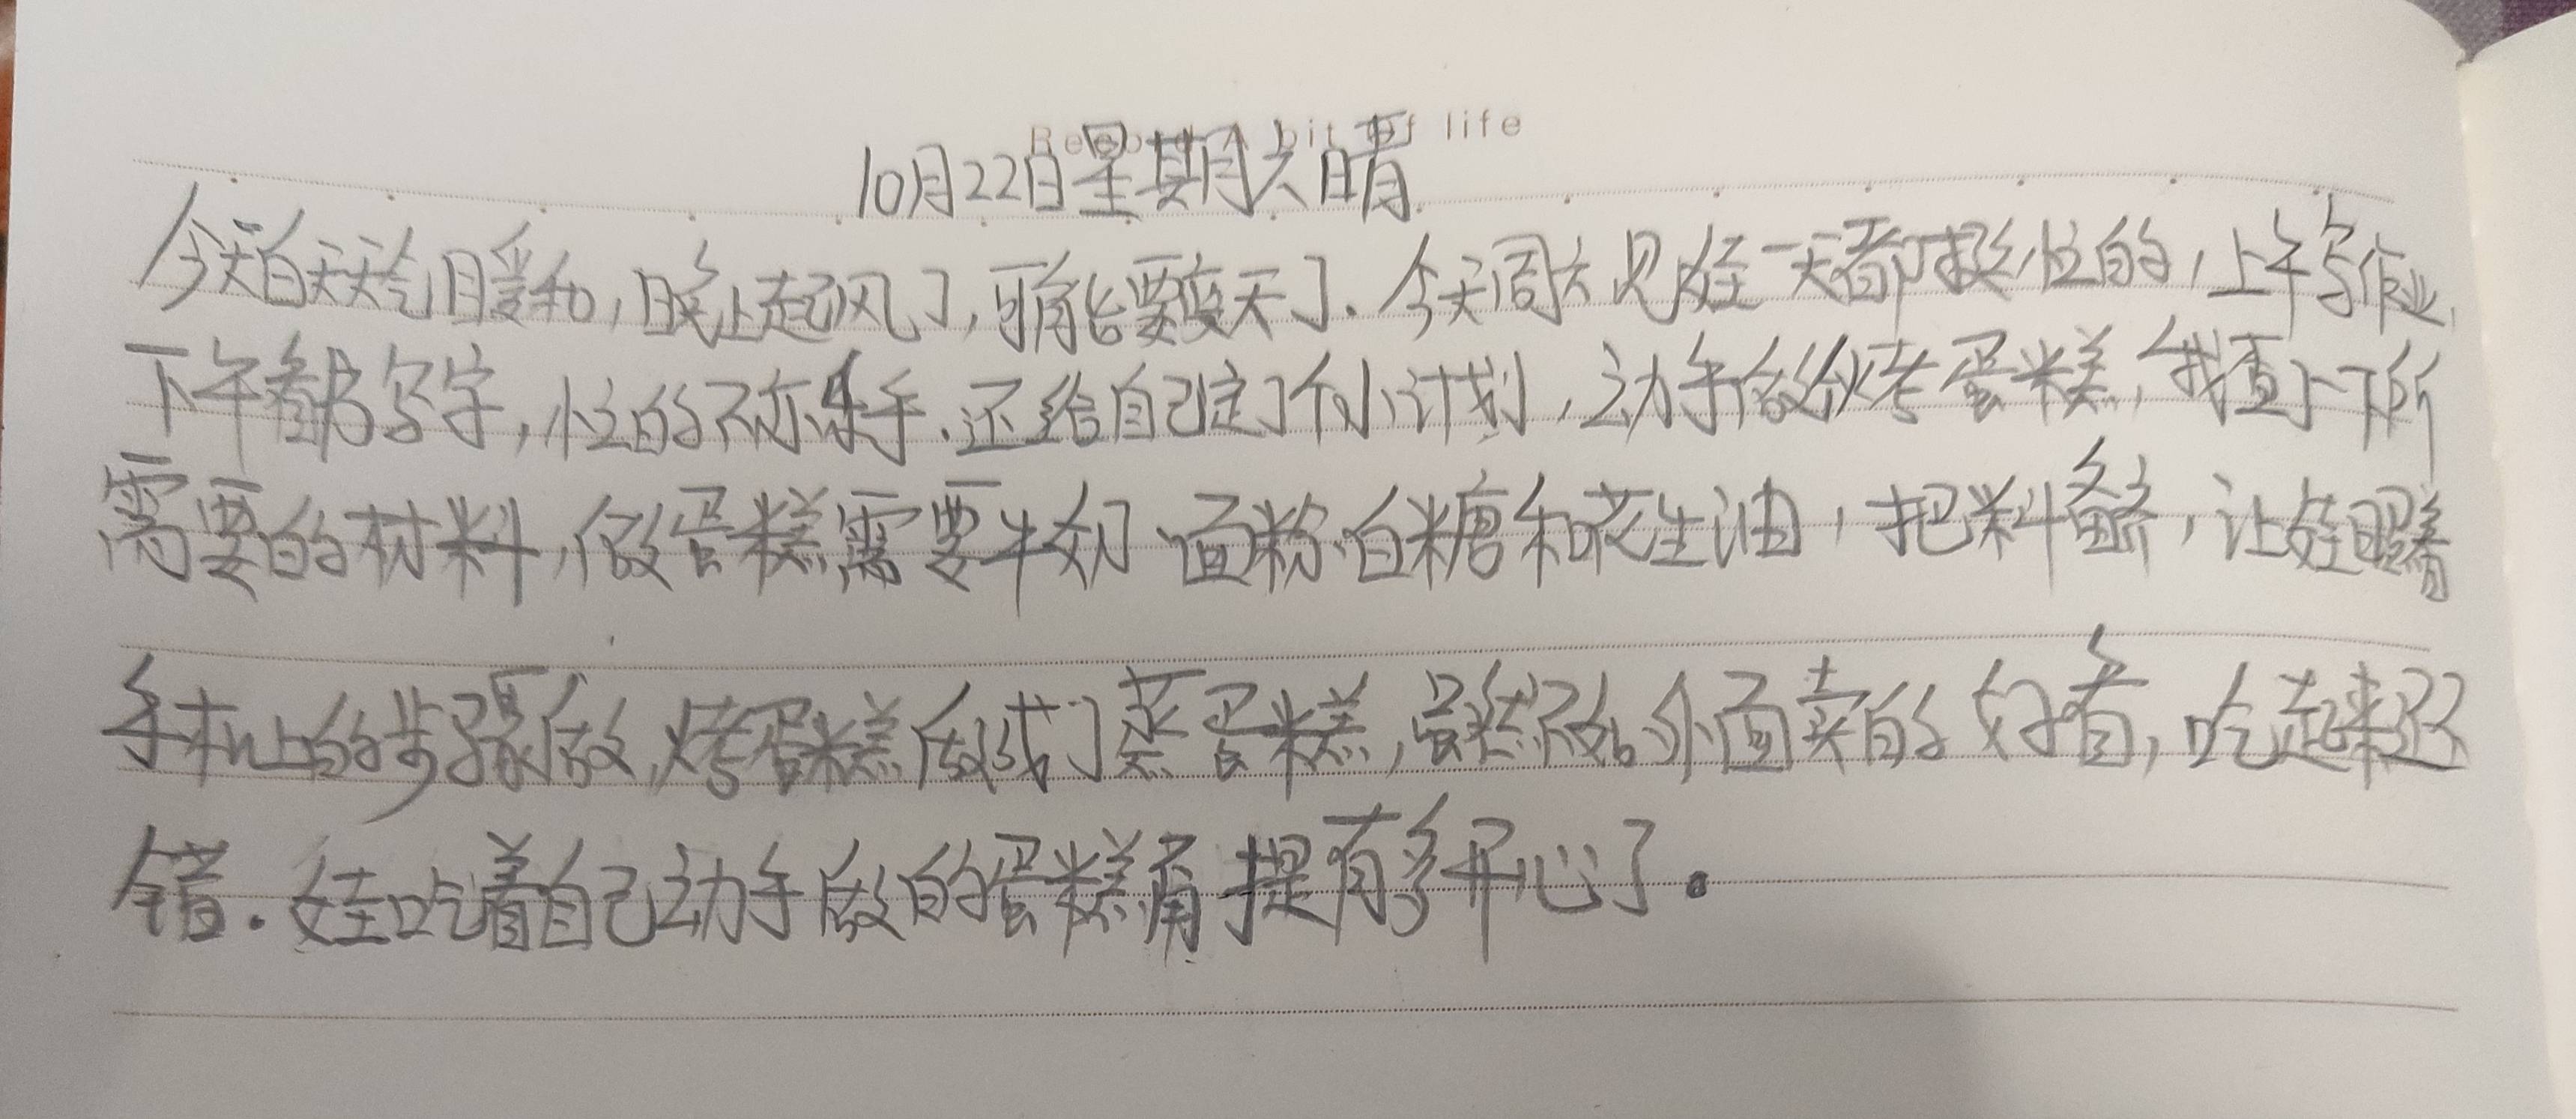 Record A bit of life
10月22日星期六晴
今天白天天气暖和,晚上起风了,可能要变天了.今天周六见娃一天都挺忙的,上午写作业,
下午看书写字,忙的不亦乐乎.还给自己定了个小计划,动手做烤蛋糕,我查了下所
需要的材料,做蛋糕需要牛奶、面粉、白糖和花生油,把料备齐,让娃跟着
手机上的步骤做,烤蛋糕做成了蒸蛋糕,虽然不如外面卖的好看,吃起来还不
错.娃吃着自己动手做的蛋糕甭提有多开心了。